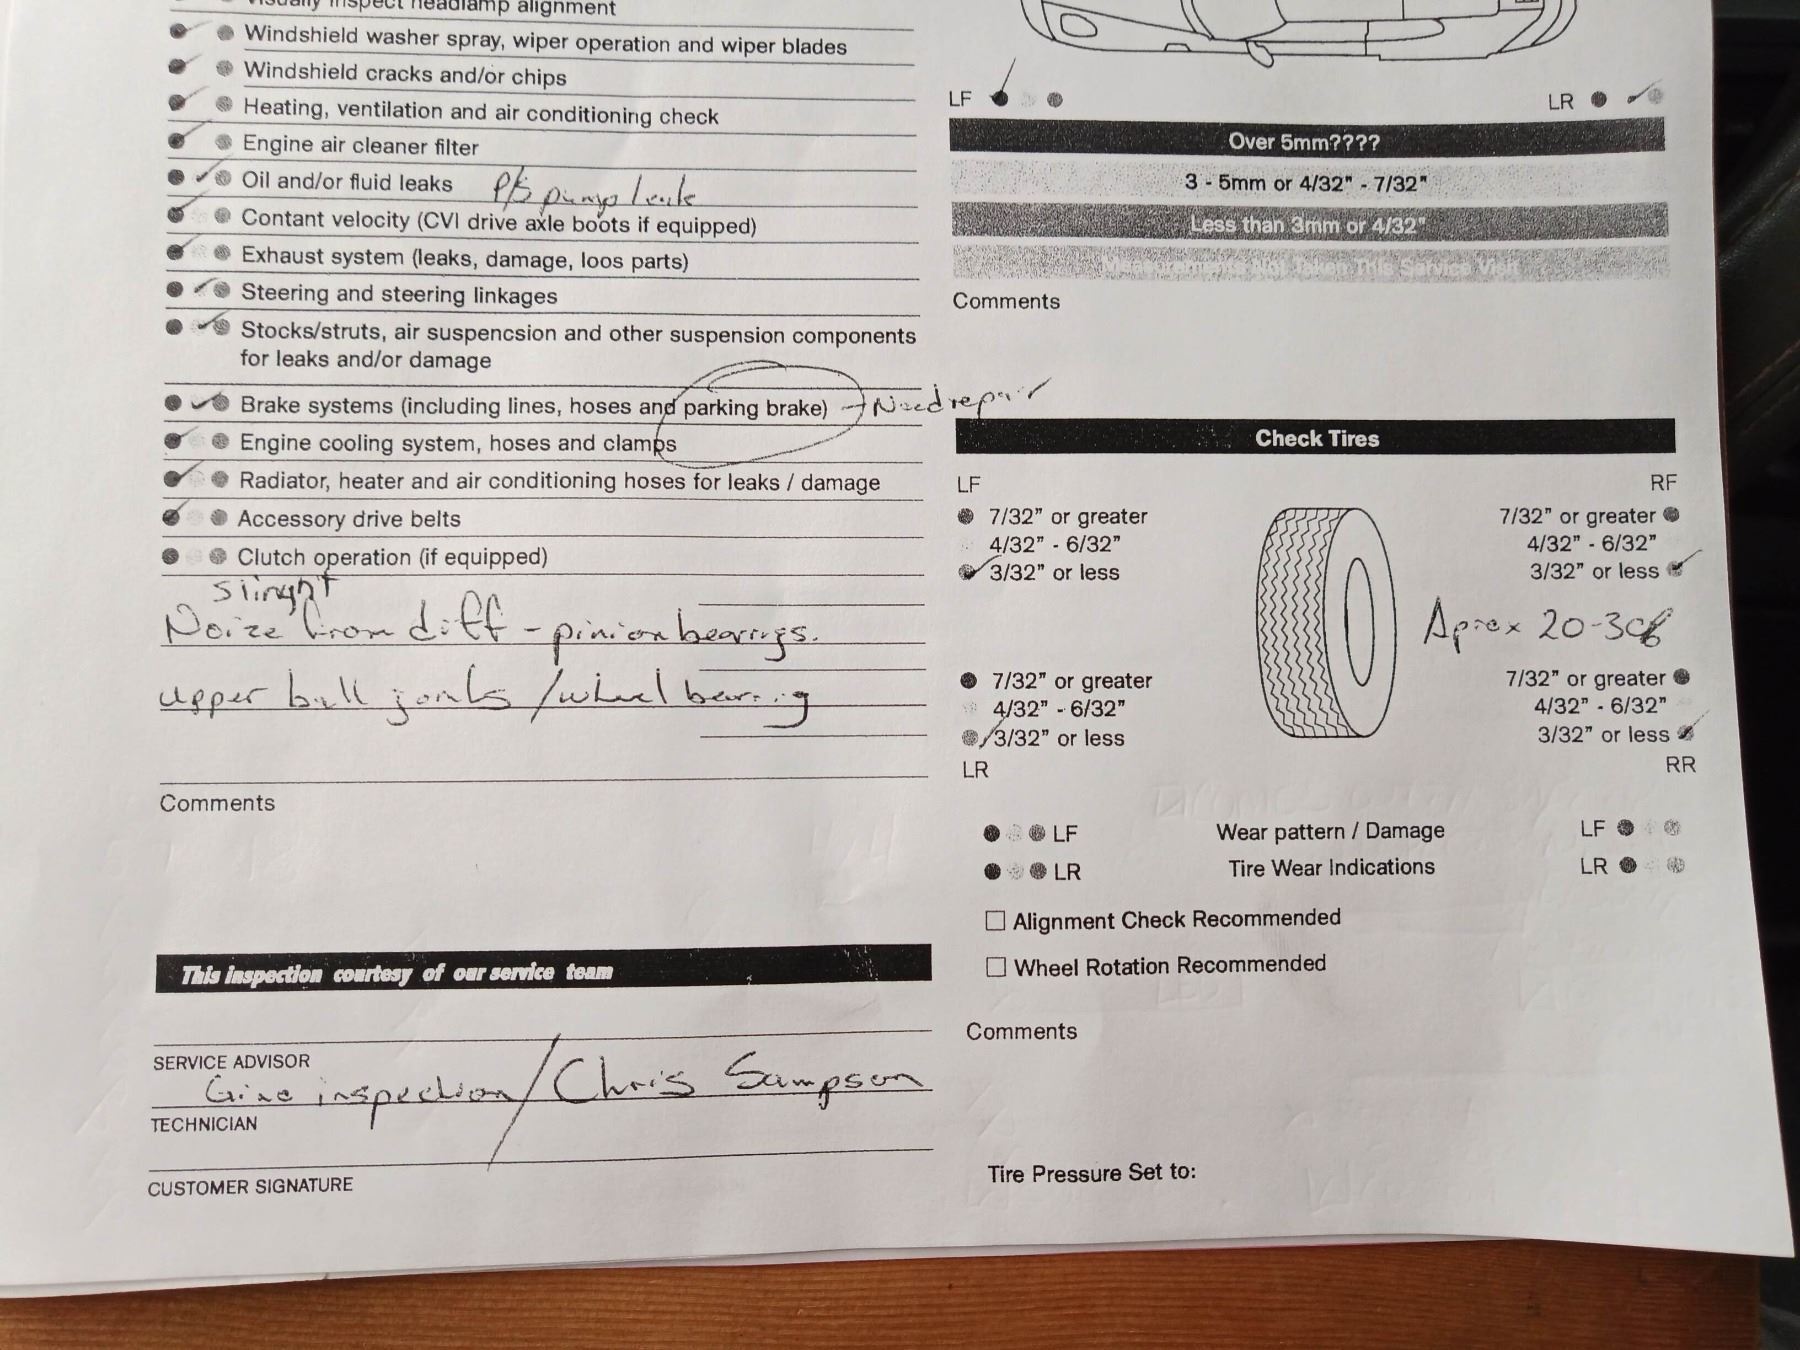 Visually inspect headlamp alignment
Windshield washer spray, wiper operation and wiper blades
Windshield cracks and/or chips
Heating, ventilation and air conditioning check
Engine air cleaner filter
Oil and/or fluid leaks P/S pump leak
Contant velocity (CVI drive axle boots if equipped)
Exhaust system (leaks, damage, loos parts)
Steering and steering linkages
Stocks/struts, air suspencsion and other suspension components
for leaks and/or damage
Brake systems (including lines, hoses and parking brake) - Need repair
Engine cooling system, hoses and clamps
Radiator, heater and air conditioning hoses for leaks / damage
Accessory drive belts
Clutch operation (if equipped)
slinght
Noize from diff - pinion bearings.
upper ball joints / wheel bearing
Comments
This inspection courtesy of our service team
SERVICE ADVISOR
inspection / Chris Sampson
TECHNICIAN
CUSTOMER SIGNATURE
LF
LR
Over 5mm????
3 - 5mm or 4/32" - 7/32"
Less than 3mm or 4/32"
Measurements Not Taken This Service Visit
Comments
Check Tires
LF
RF
7/32" or greater
7/32" or greater
4/32" - 6/32"
4/32" - 6/32"
3/32" or less
3/32" or less
Aprox 20-30%
7/32" or greater
7/32" or greater
4/32" - 6/32"
4/32" - 6/32"
3/32" or less
3/32" or less
LR
RR
LF Wear pattern / Damage LF
LR Tire Wear Indications LR
Alignment Check Recommended
Wheel Rotation Recommended
Comments
Tire Pressure Set to: